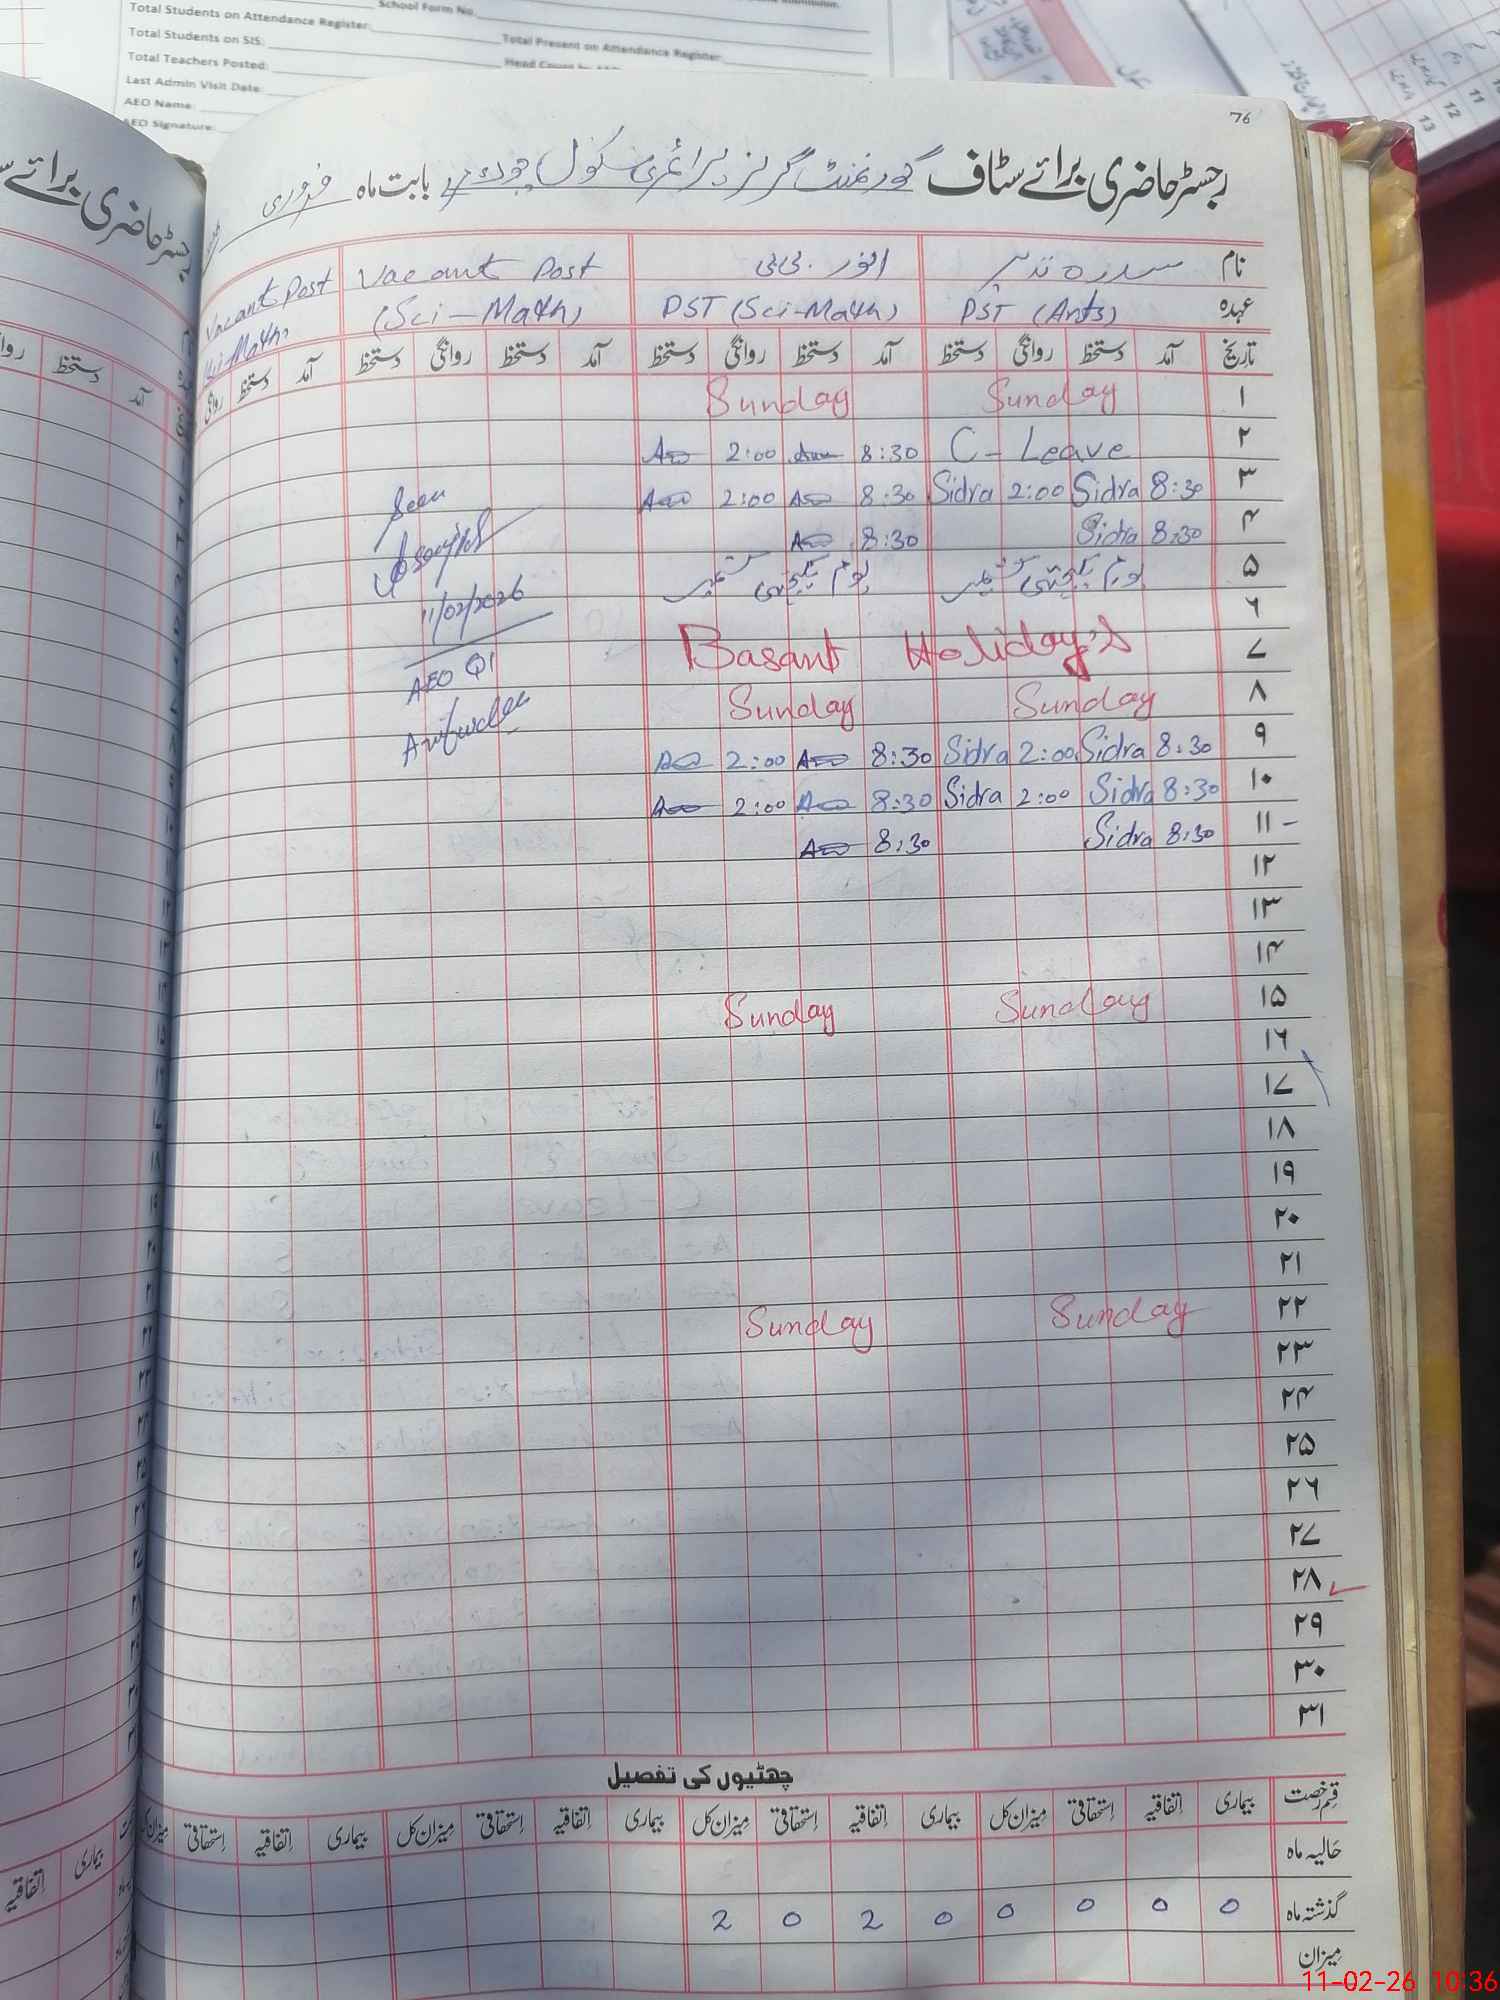 School Form No.
Total Students on Attendance Register:
Total Students on SIS:
Total Present on Attendance Register:
Total Teachers Posted:
Last Admin Visit Date:
AEO Name:
AEO Signature:
76
رجسٹر حاضری برائے سٹاف گورنمنٹ گرلز پرائمری سکول بابت ماہ فروری
نام سدرہ انور بی بی Vacant Post Vacant Post
عہدہ PST (Arts) PST (Sci-Math) (Sci-Math) Sci-Math
تاریخ آمد دستخط روانگی دستخط آمد دستخط روانگی دستخط آمد دستخط روانگی دستخط آمد دستخط روانگی
۱ Sunday Sunday
۲ C-Leave 8:30 2:00
۳ 8:30 Sidra 2:00 Sidra 8:30 2:00
۴ 8:30 Sidra 8:30
۵ یوم یکجہتی کشمیر یوم یکجہتی کشمیر
۶
۷ Basant Holiday's
۸ Sunday Sunday
۹ 8:30 Sidra 2:00 Sidra 8:30 2:00
۱۰ 8:30 Sidra 2:00 Sidra 8:30 2:00
۱۱ 8:30 Sidra 8:30
Seen
11/02/2026
AEO Q1
۱۲
۱۳
۱۴
۱۵ Sunday Sunday
۱۶
۱۷
۱۸
۱۹
۲۰
۲۱
۲۲ Sunday Sunday
۲۳
۲۴
۲۵
۲۶
۲۷
۲۸
۲۹
۳۰
۳۱
چھٹیوں کی تفصیل
قسم رخصت بیماری اتفاقیہ استحقاقی میزان کل بیماری اتفاقیہ استحقاقی میزان کل بیماری اتفاقیہ استحقاقی میزان کل بیماری اتفاقیہ استحقاقی میزان کل
حالیہ ماہ
گذشتہ ماہ 0 0 0 0 0 2 0 2
میزان
11-02-26 10:36